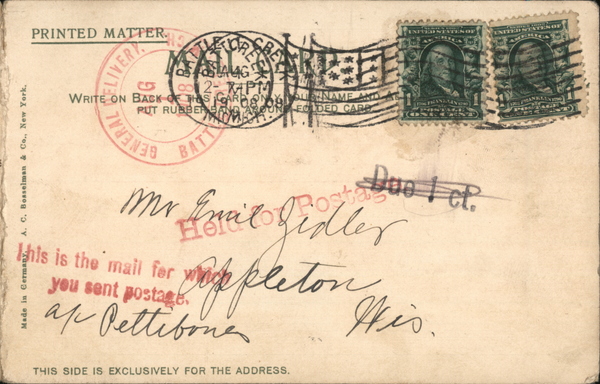 PRINTED MATTER.
MAIL CARD
WRITE ON BACK OF THIS CARD ONLY
PUT RUBBER BAND AROUND FOLDED CARD
GENERAL DELIVERY.
AUG
BATT
BATTLE CREEK
AUG
7-PM
1908
MICH.
UNITED STATES OF
1 1
FRANKLIN
ONE CENT
UNITED STATES OF
FRANKLIN
1
Due 1 ct.
Held for Postage
Mr Emil Zidler
This is the mail for which
you sent postage.
Appleton
a/c Pettibones Wis.
Made in Germany. A. C. Bosselman & Co., New York.
THIS SIDE IS EXCLUSIVELY FOR THE ADDRESS.